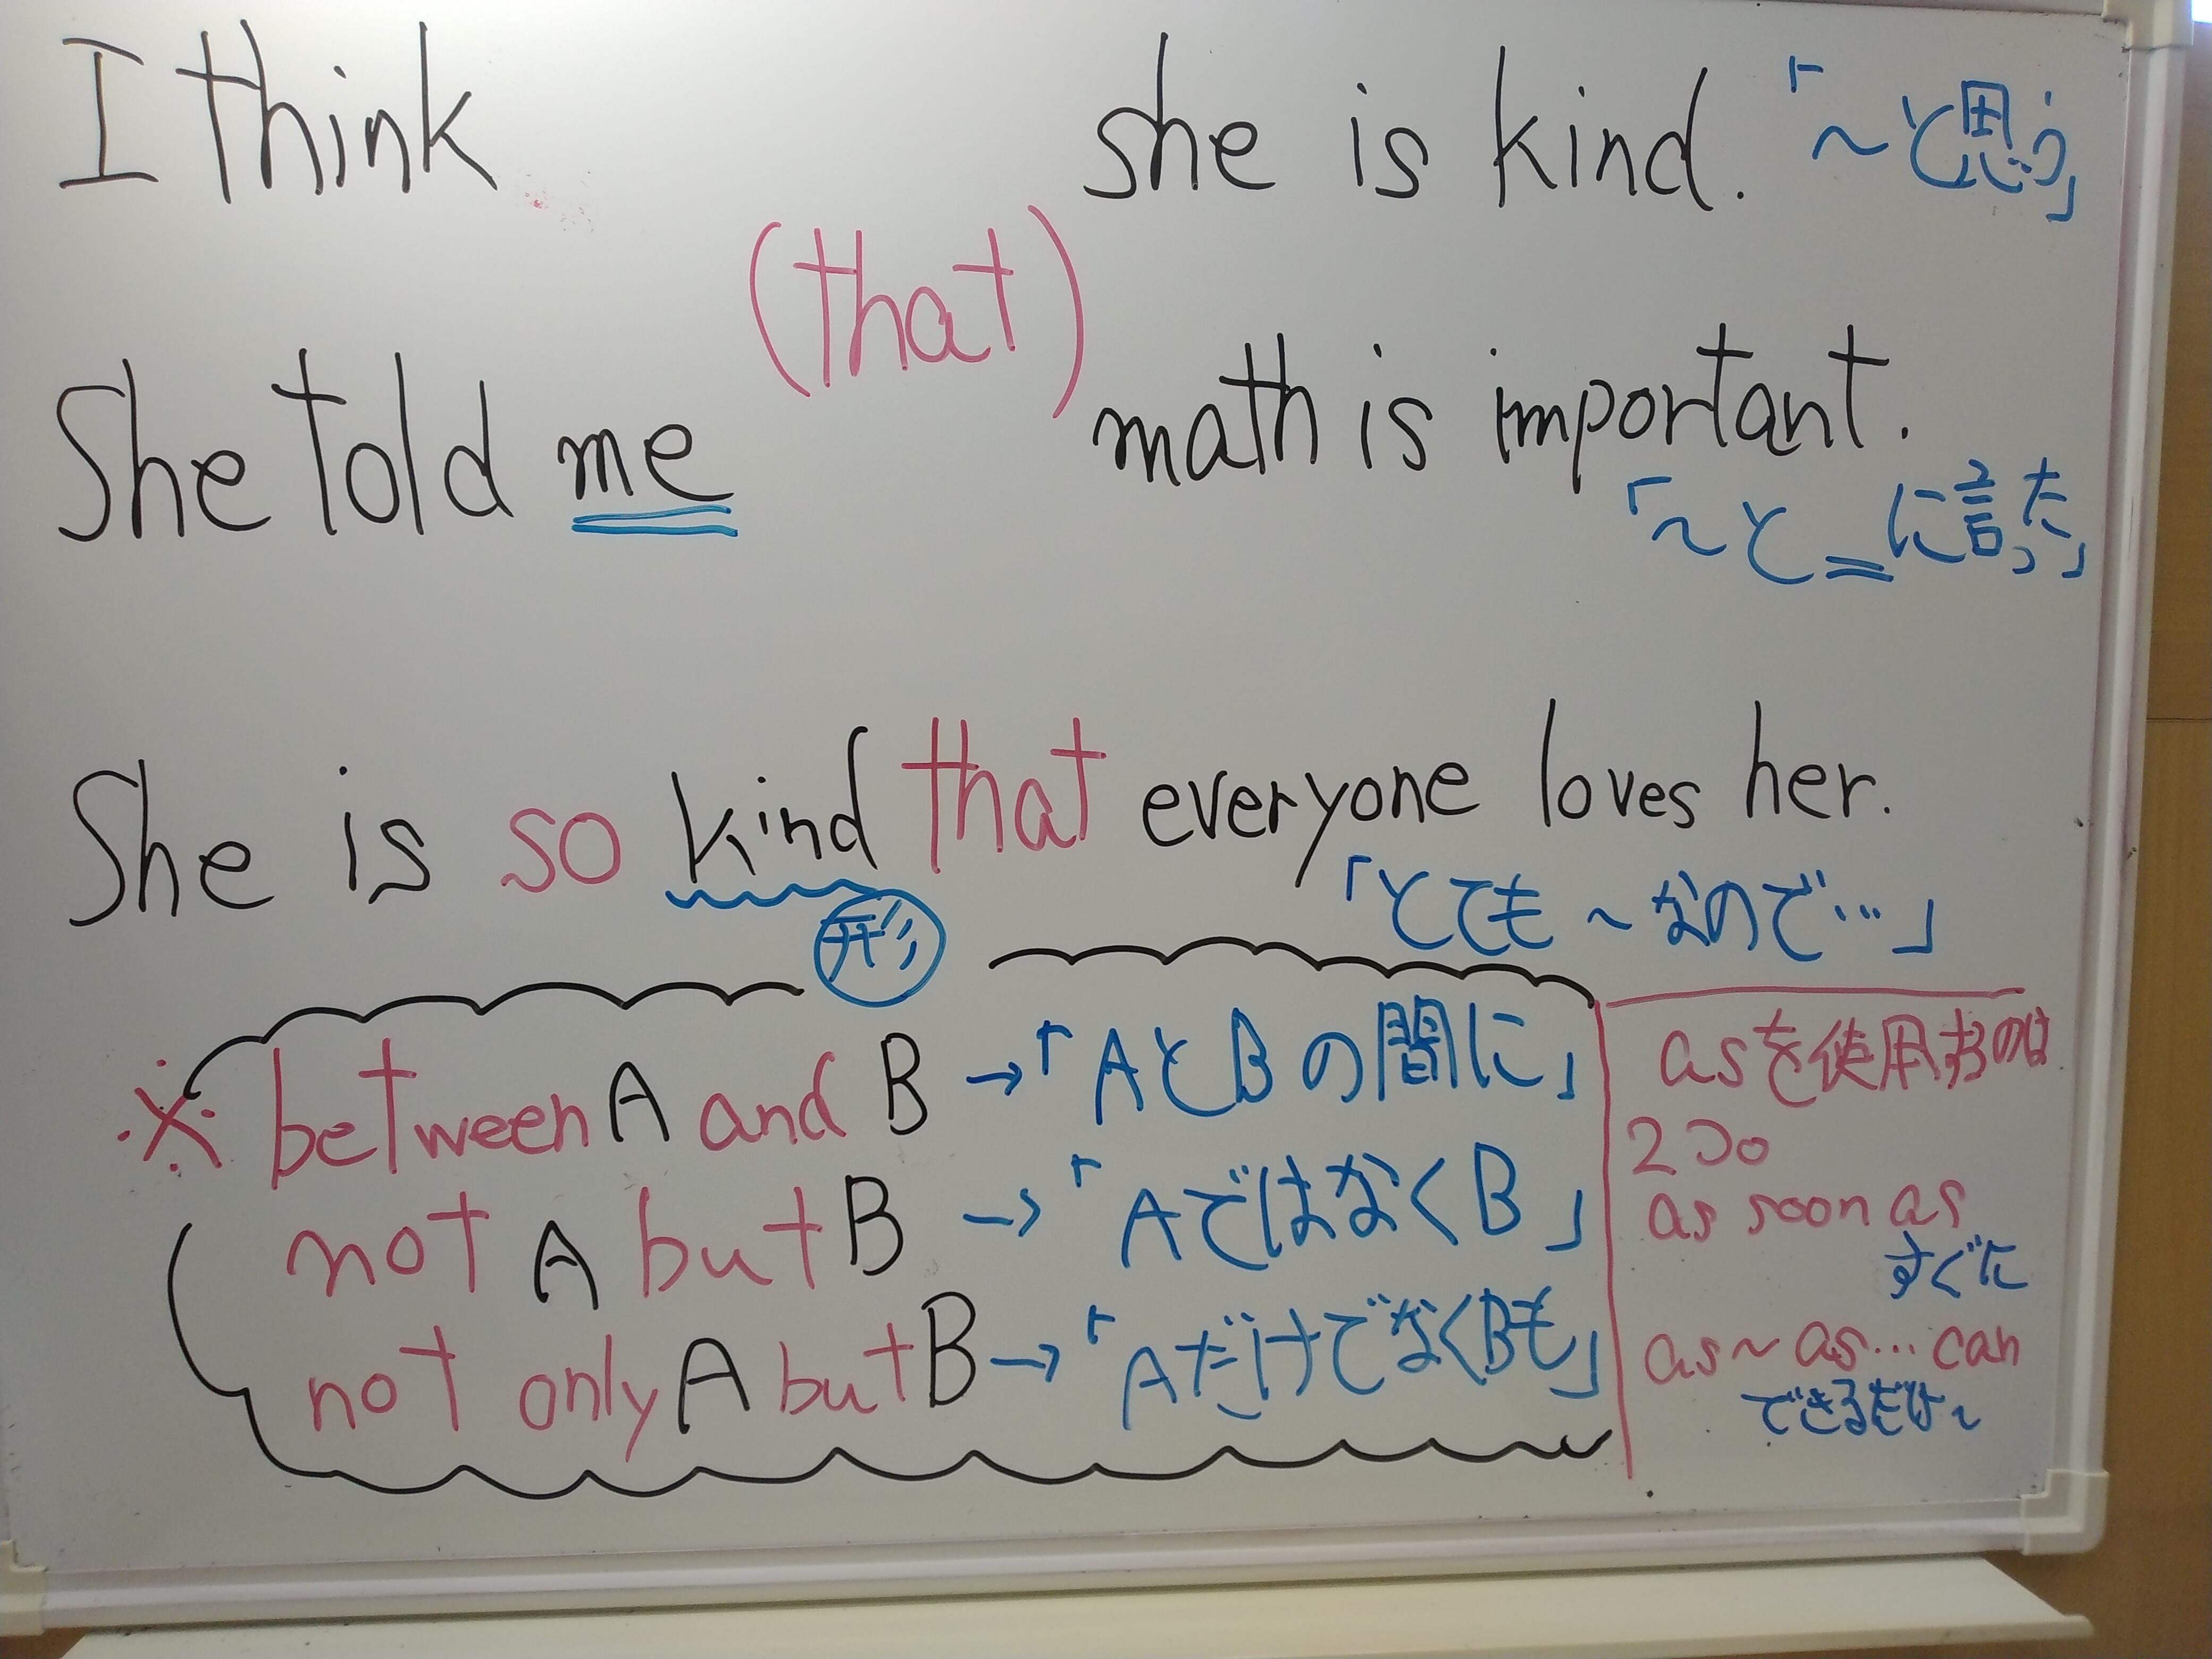 I think she is kind. 「～と思う」
(that)
She told me math is important.
「～と＿に言った」
She is so kind that everyone loves her.
形 「とても～なので…」
※ between A and B →「AとBの間に」
not A but B →「AではなくB」
not only A but B →「AだけでなくBも」
asを使用するのは
2つ。
as soon as
すぐに
as～as…can
できるだけ～